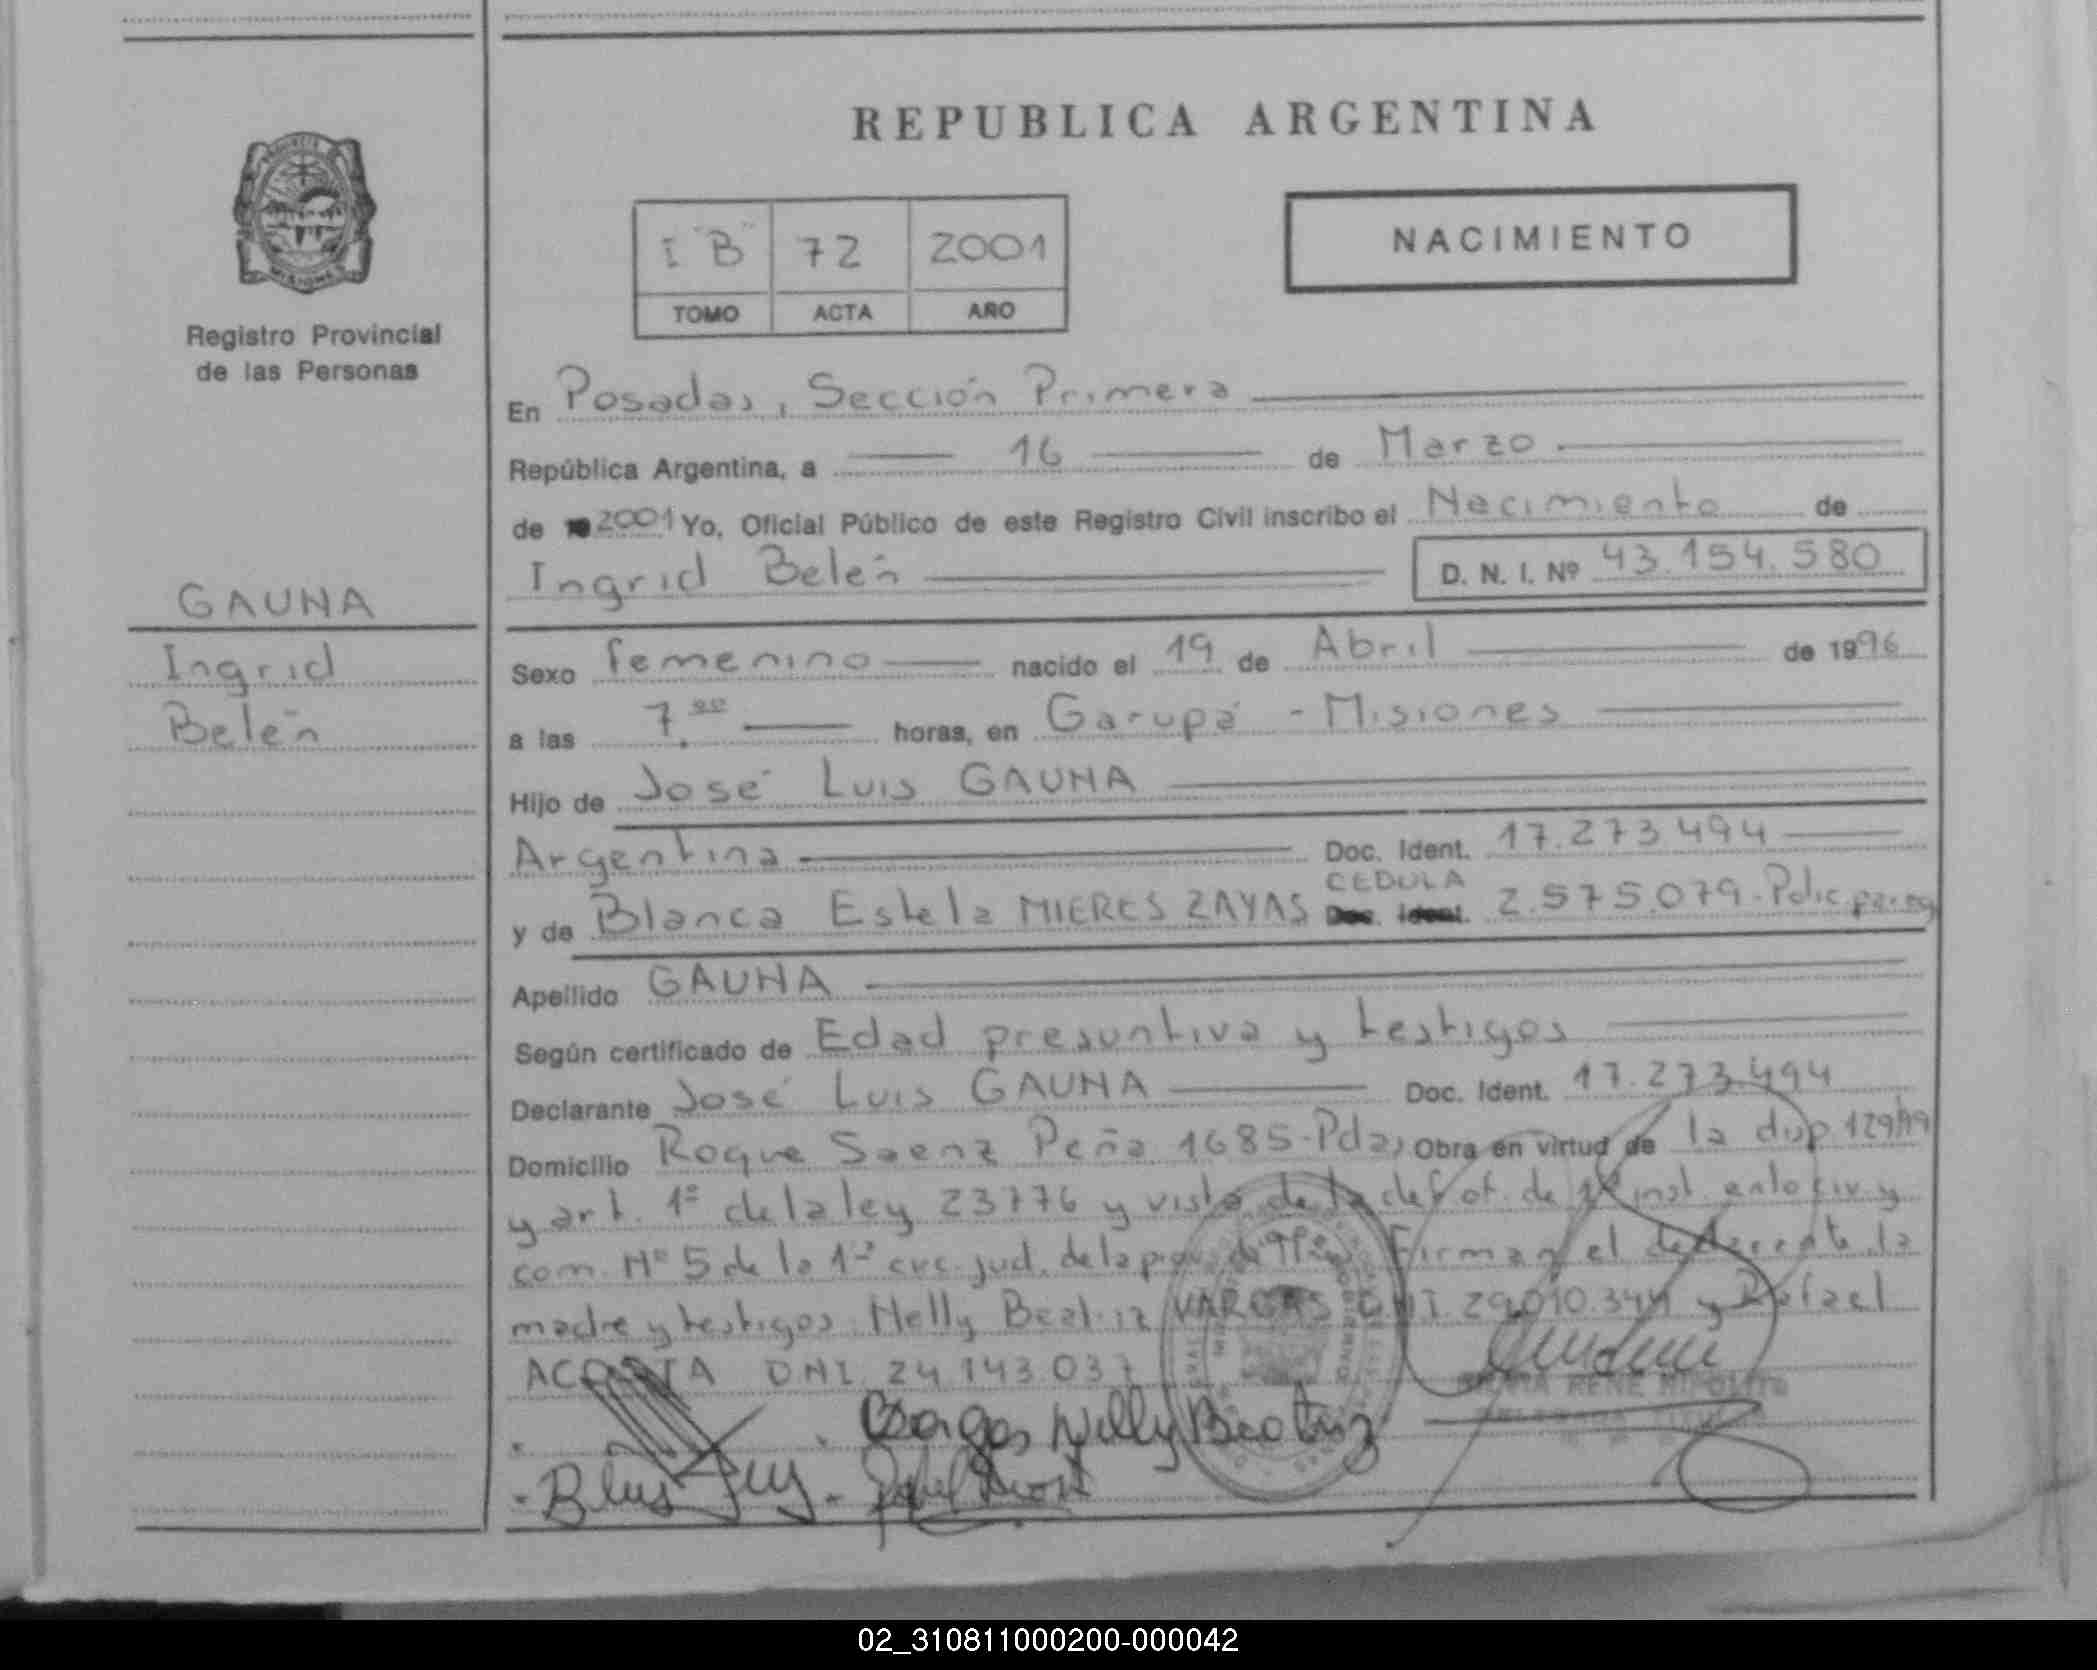 REPUBLICA ARGENTINA
NACIMIENTO
I "B" 72 2001
TOMO ACTA AÑO
Registro Provincial
de las Personas
GAUNA
Ingrid
Belén
En Posadas, Sección Primera
República Argentina, a 16 de Marzo
de 2001 Yo, Oficial Público de este Registro Civil inscribo el Nacimiento de
Ingrid Belén D. N. I. Nº 43.154.580
Sexo femenino nacido el 19 de Abril de 1996
a las 7.00 horas, en Garupá - Misiones
Hijo de José Luis GAUNA
Argentina Doc. Ident. 17.273.494
CEDULA
y de Blanca Estela MIERES ZAYAS Doc. Ident. 2.575.079. Polic. parag
Apellido GAUNA
Según certificado de Edad presuntiva y testigos
Declarante José Luis GAUNA Doc. Ident. 17.273.494
Domicilio Roque Saenz Peña 1685-Pdas Obra en virtud de la disp 129/99
y art. 1º de la ley 23776 y vista de la def. of. de 1º inst. en lo civ y
com. Nº 5 de la 1º circ. jud. de la prov. de Mnes. Firman el declarante, la
madre y testigos: Nelly Beatriz VARGAS DNI. 29.010.344 y Rafael
ACOSTA DNI. 24.143.037
Vargas Nelly Beatriz
SILVIA RENE HIPOLITO
DELEGADA TITULAR
02_310811000200-000042